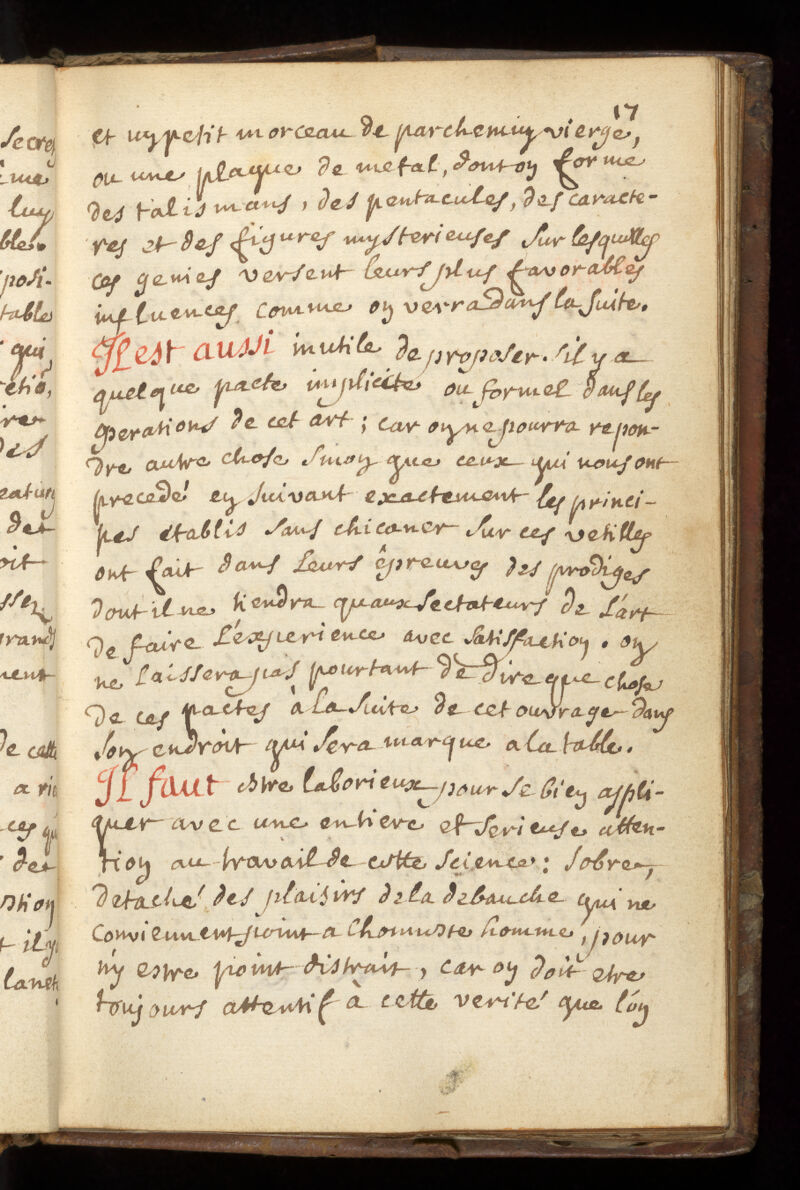 Secres
ême
luy
ble.
posi-
table
qui
etio,
ire
des
eatur
det
oit
ssez
grands
nent
de cette
a ri
ces qu
det
stion
t il y
lanet
17
et un petit morceau de parchemin vierge,
ou une plaque de metal, dont on forme
des talismans, des pentacules, des caracte-
res et des figures mysterieuses sur lesquelles
ces genies versent leurs plus favorables
influences comme on verra dans la suite.
Il est aussi inutile de proposer. s'il y a
quelque pacte implicite ou formel dans les
operations de cet art; car on ne pourra repon-
dre autre chose sinon que ceux qui nous ont
precedé en suivant exactement les princi-
pes etablis sans chicaner sur ces vetilles
ont fait dans leurs êpreuves des prodiges
dont il ne tiendra quaux sectateurs de l'art
de faire l'éxperience avec satisfaction. on
ne laissera pas pourtant de dire que chose
de ces pactes à la suite de cet ouvrage dans
son endroit qui sera marque a la table.
Il faut estre laborieux pour se bien appli-
quer avec une entiere et serieuse atten-
tion au travail de cette science: sobre,
detaché des plaisirs de la debauche qui ne
conviennent point a lhonneste homme, pour
n'y estre point distrait, car on doit etre
toujours attentif à cette verité que l'on